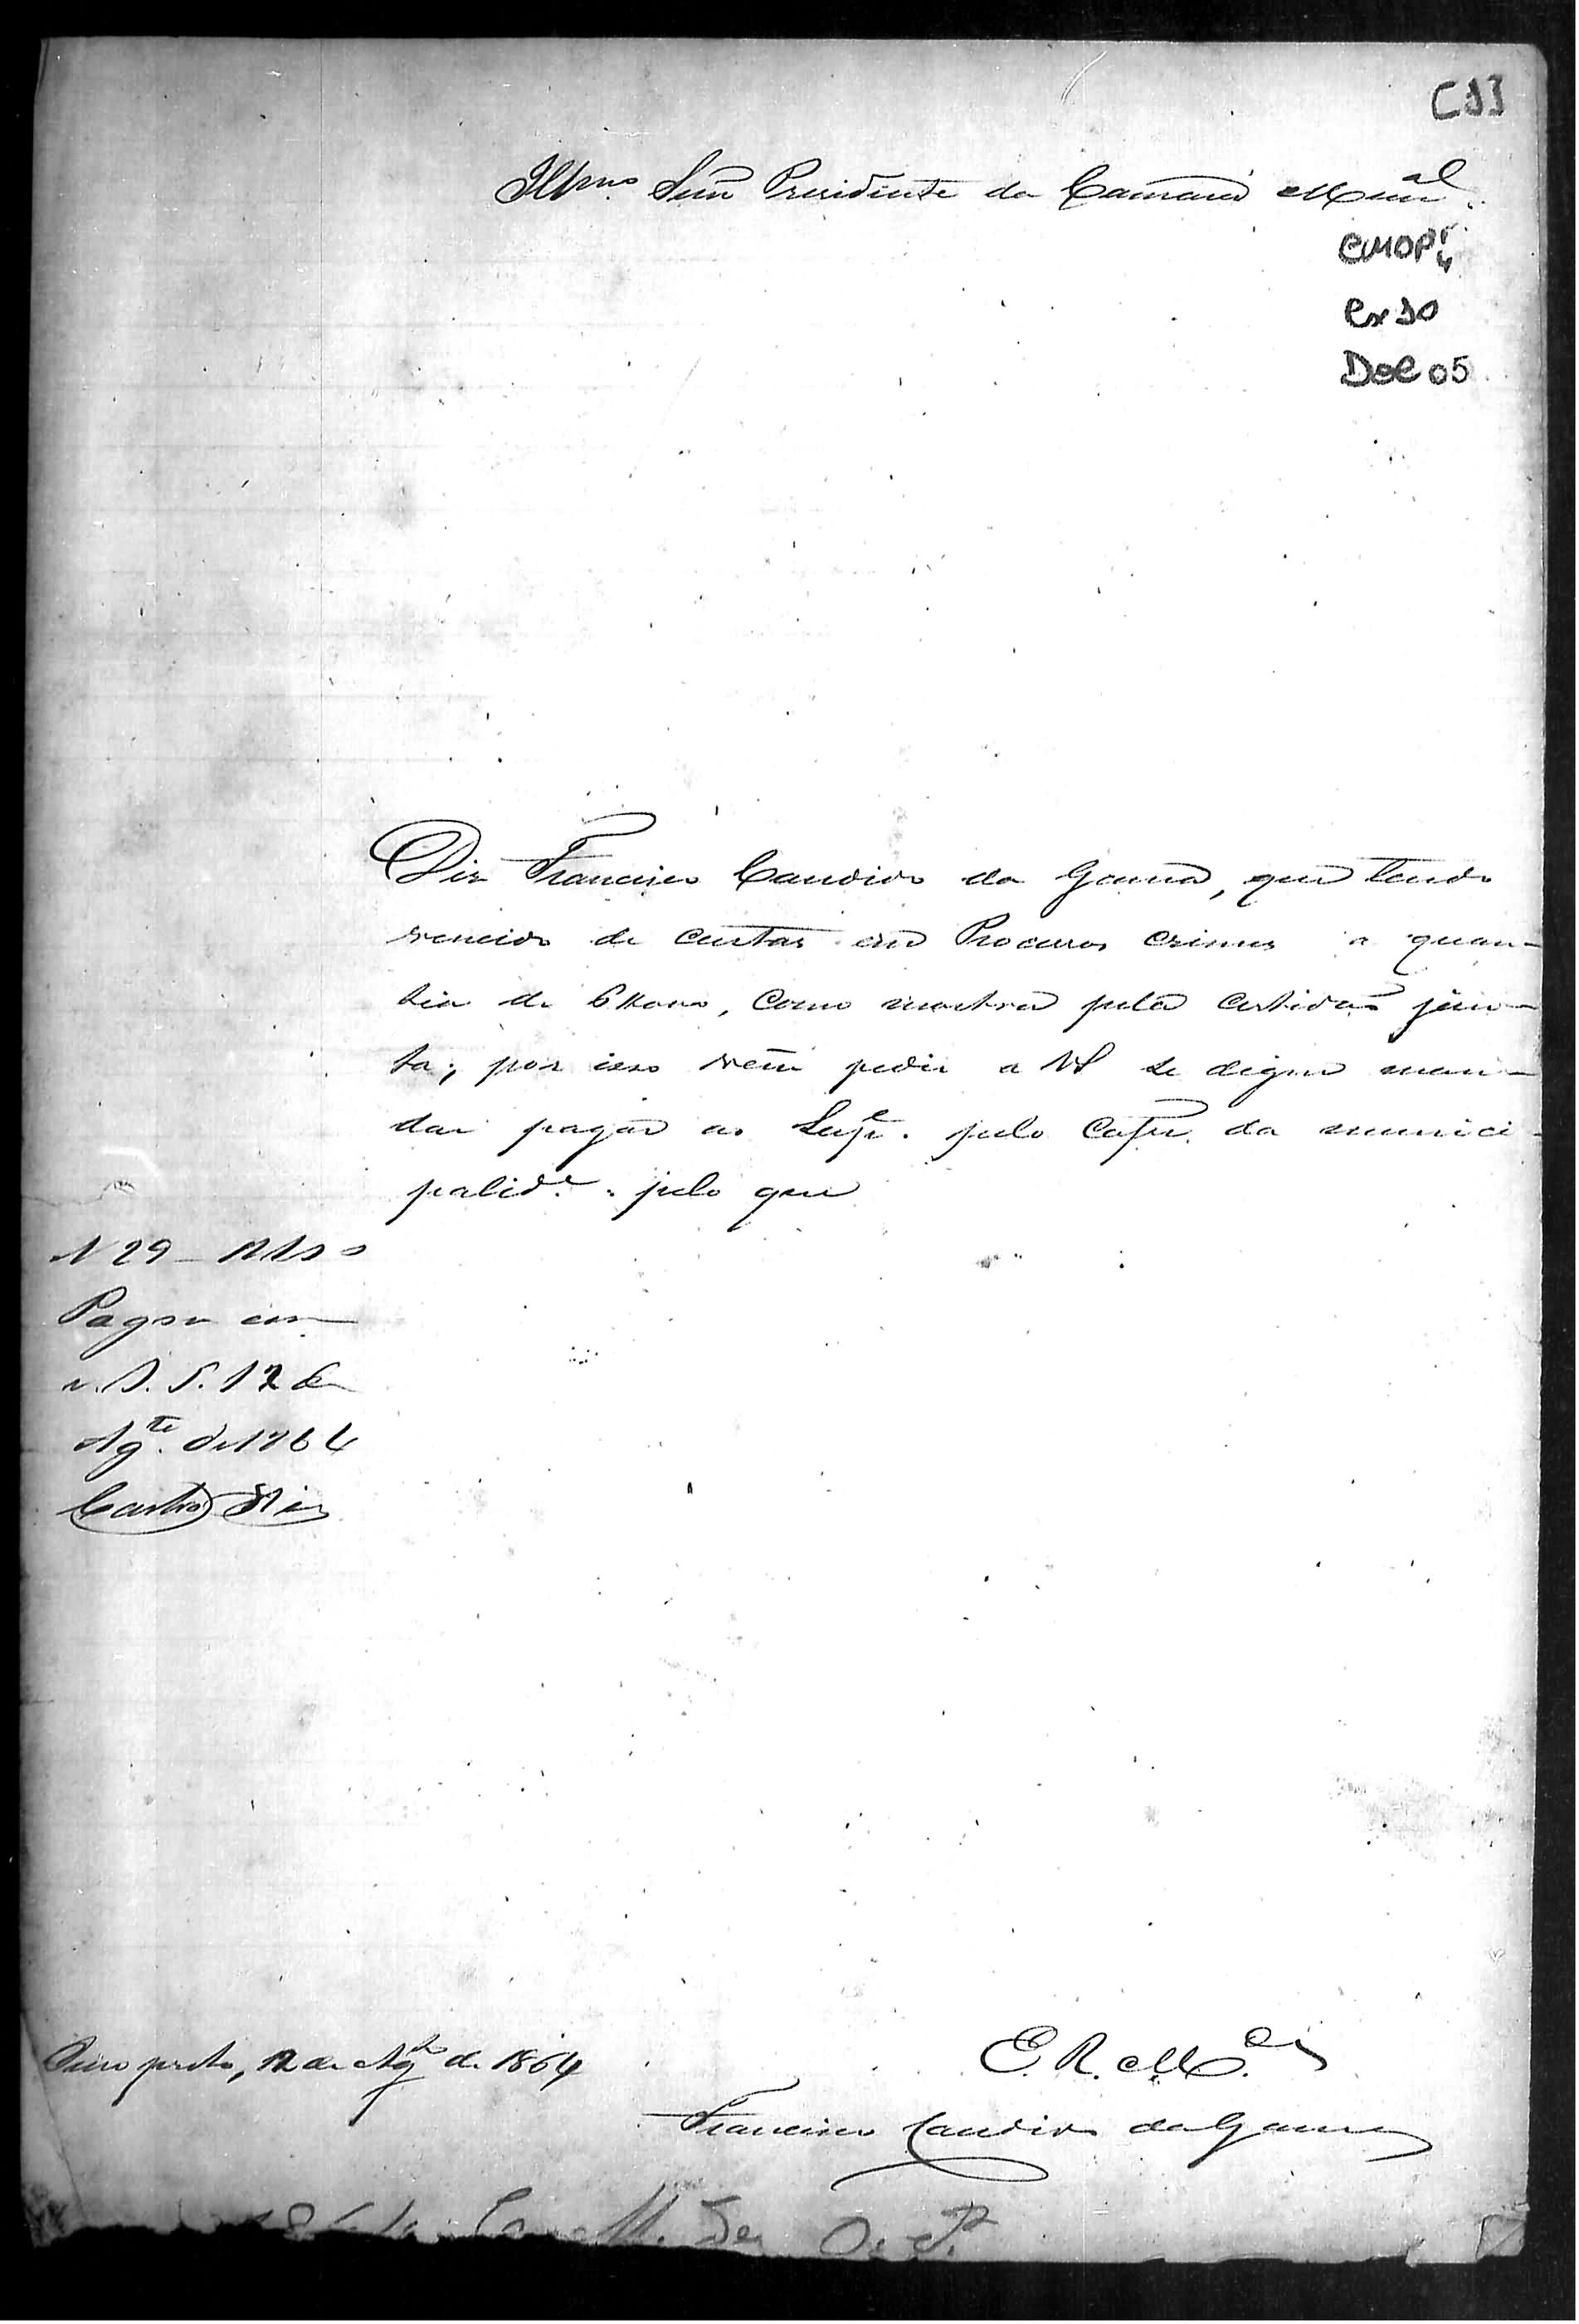 C13
Illmo. Senr Presidente da Camara Mal.
CMOP
Cx 10
Doc 05
Diz Francisco Candido da Gama, que tendo
vencido de custas em Processos crimes a quan-
tia de como mostra pela certidaõ jun-
ta; por isso vem pedir a VS se digne man-
dar pagar ao Supe. pelo Cofre da munici-
palide. pelo que
N 29
Pagou em
12 de
Agto. de 1864
Castro
Ouro preto, 12 de Agto de 1864
E. R. Mce
Francisco Candido da Gama